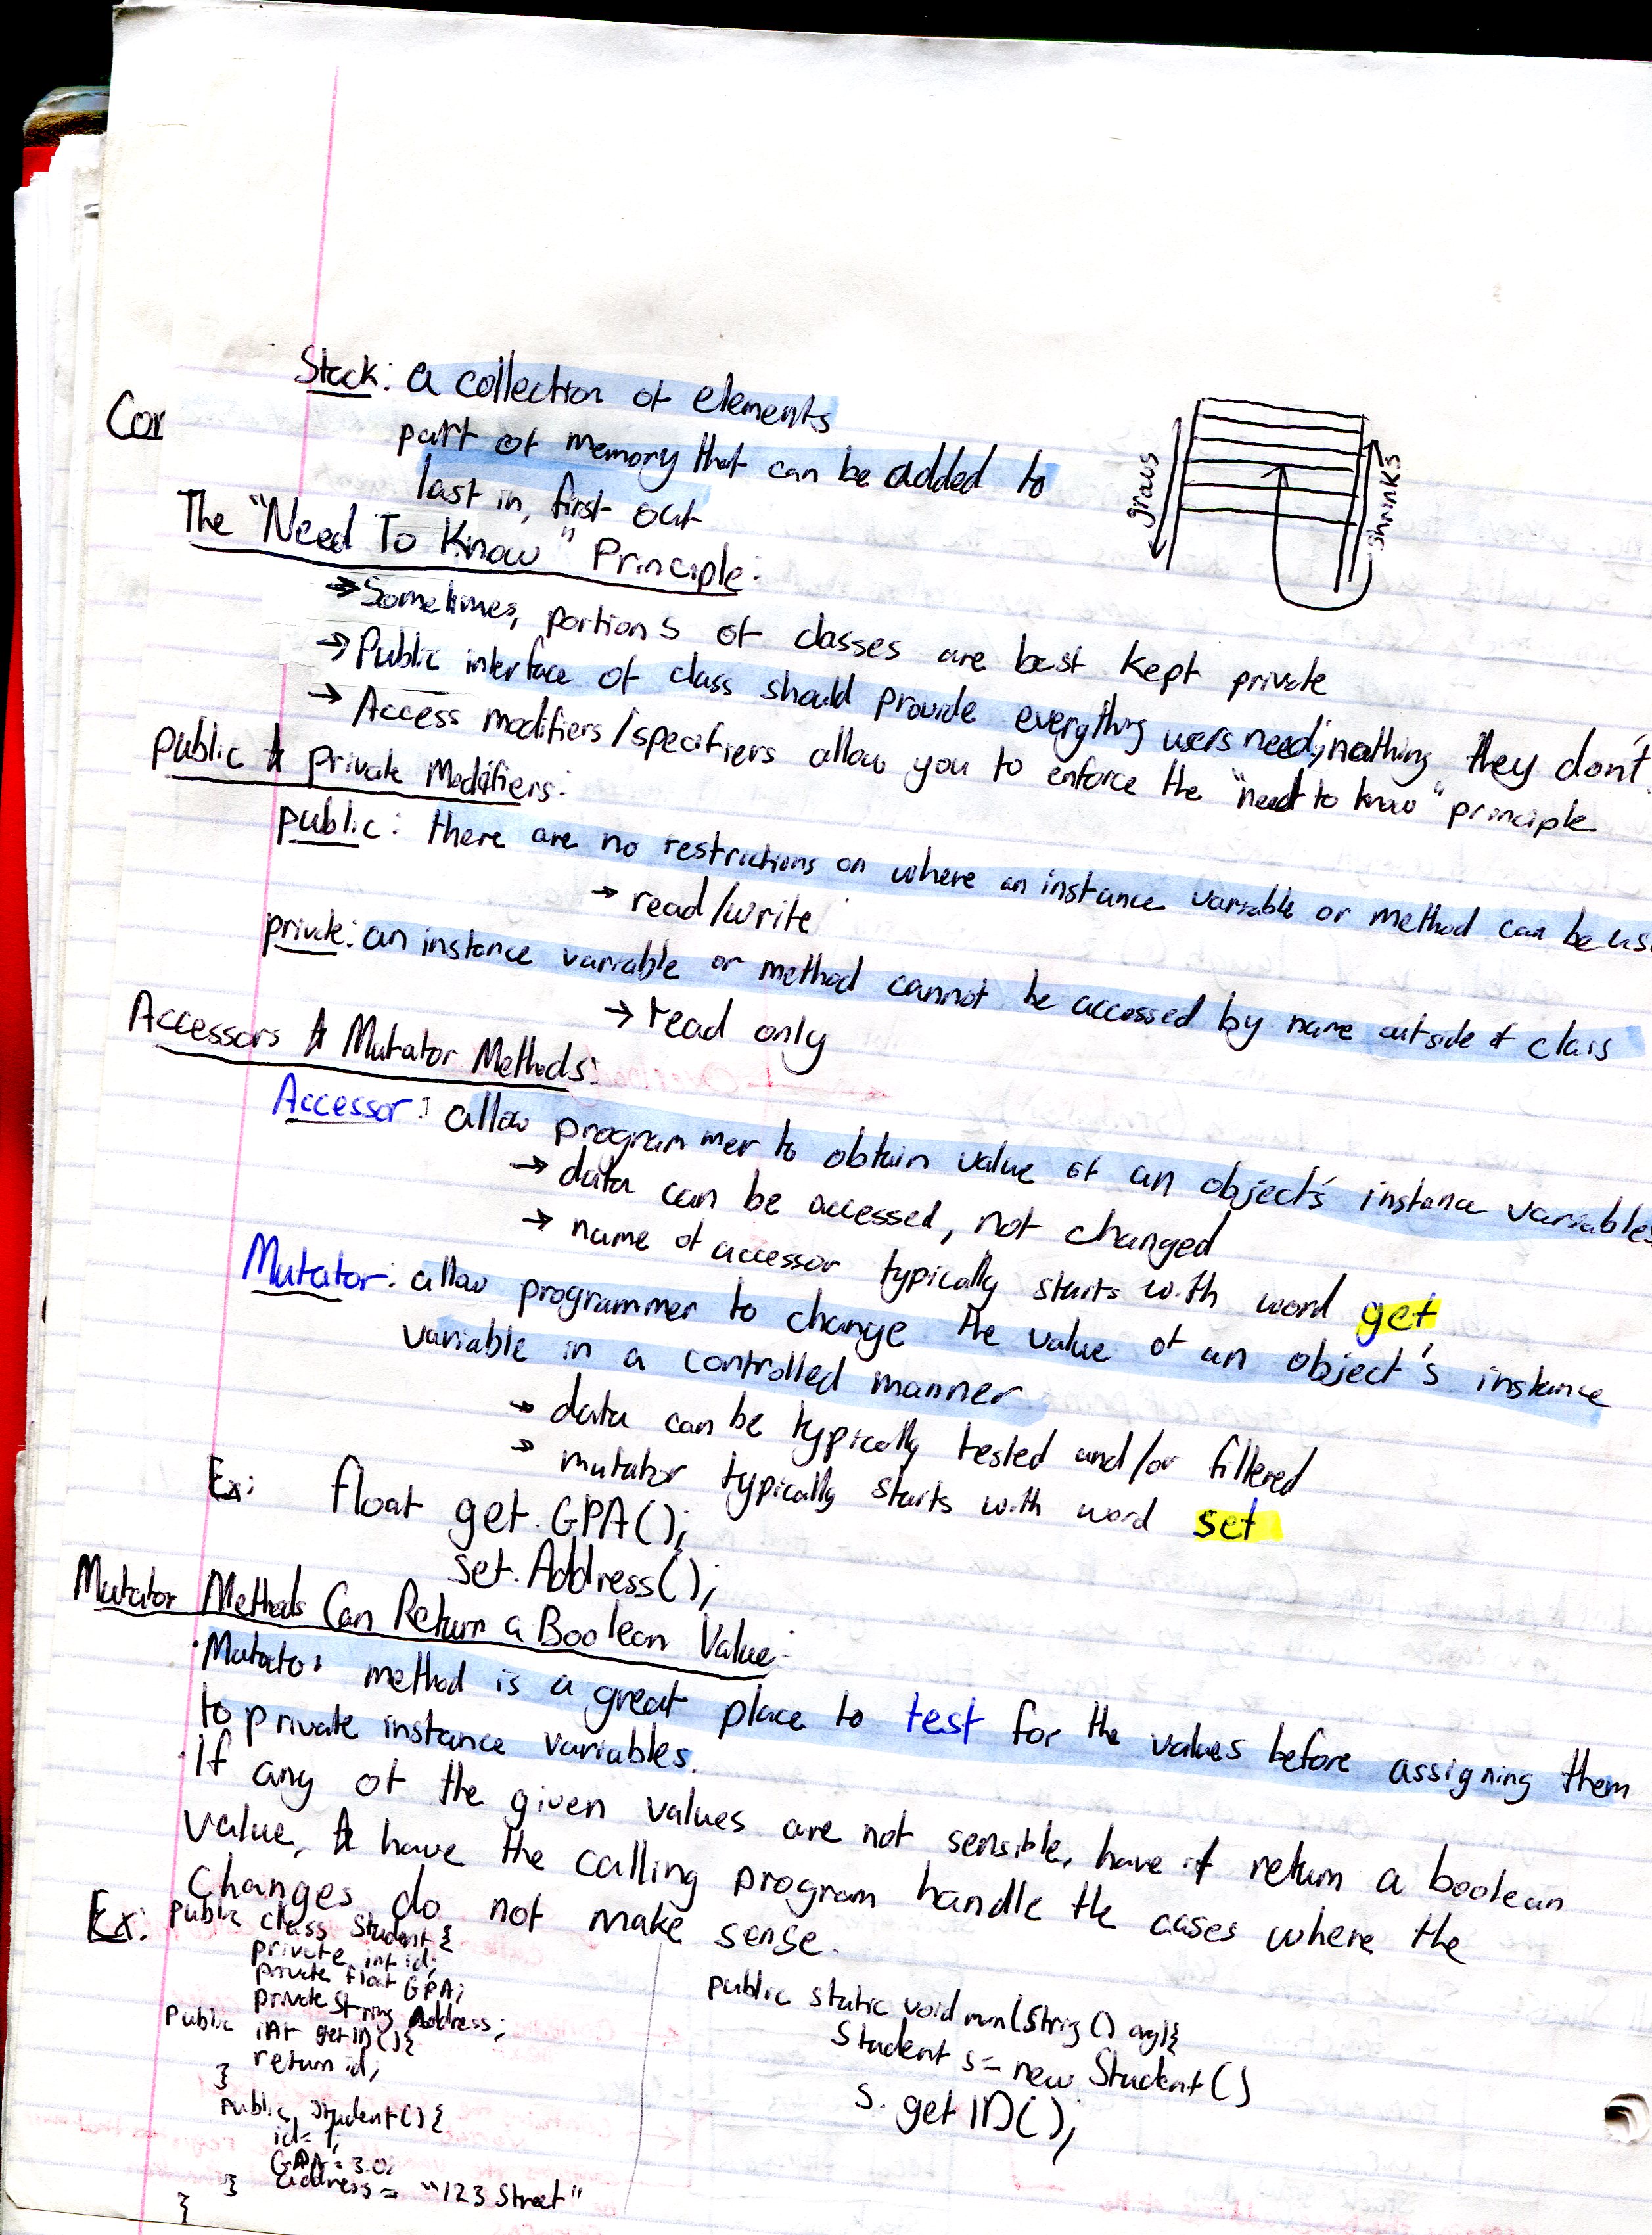 Stack: a collection of elements
Cor
part of memory that can be added to
last in, first out
grows
shrinks
The "Need To Know" Principle:
→ Sometimes, portions of classes are best kept private
→ Public interface of class should provide everything users need; nothing they don't
→ Access modifiers/specifiers allow you to enforce the "need to know" principle
public & private Modifiers:
public: there are no restrictions on where an instance variable or method can be us
→ read/write
private: an instance variable or method cannot be accessed by name outside of class
→ read only
Accessors & Mutator Methods:
Accessor: allow programmer to obtain value of an object's instance variables
→ data can be accessed, not changed
→ name of accessor typically starts with word get
Mutator: allow programmer to change the value of an object's instance
variable in a controlled manner
→ data can be typically tested and/or filtered
→ mutator typically starts with word set
Ex: float get.GPA();
set.Address();
Mutator Methods Can Return a Boolean Value:
· Mutator method is a great place to test for the values before assigning them
to private instance variables.
· If any of the given values are not sensible, have it return a boolean
value, & have the calling program handle the cases where the
changes do not make sense.
Ex: public class Student {
private int id;
private float GPA;
private String Address;
Public int getID(){
return id;
}
public Student(){
id= 1;
GPA = 3.0;
address = "123 Street"
}
}
public static void main(String () arg){
Student s = new Student()
s. getID();